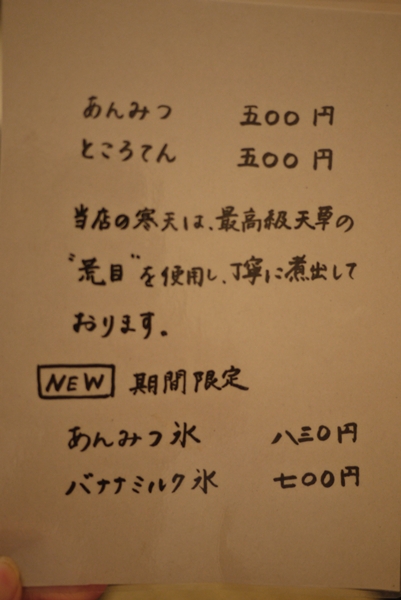 あんみつ 五〇〇円
ところてん 五〇〇円
当店の寒天は、最高級天草の
“荒目”を使用し、丁寧に煮出して
おります。
NEW 期間限定
あんみつ氷 八三〇円
バナナミルク氷 七〇〇円